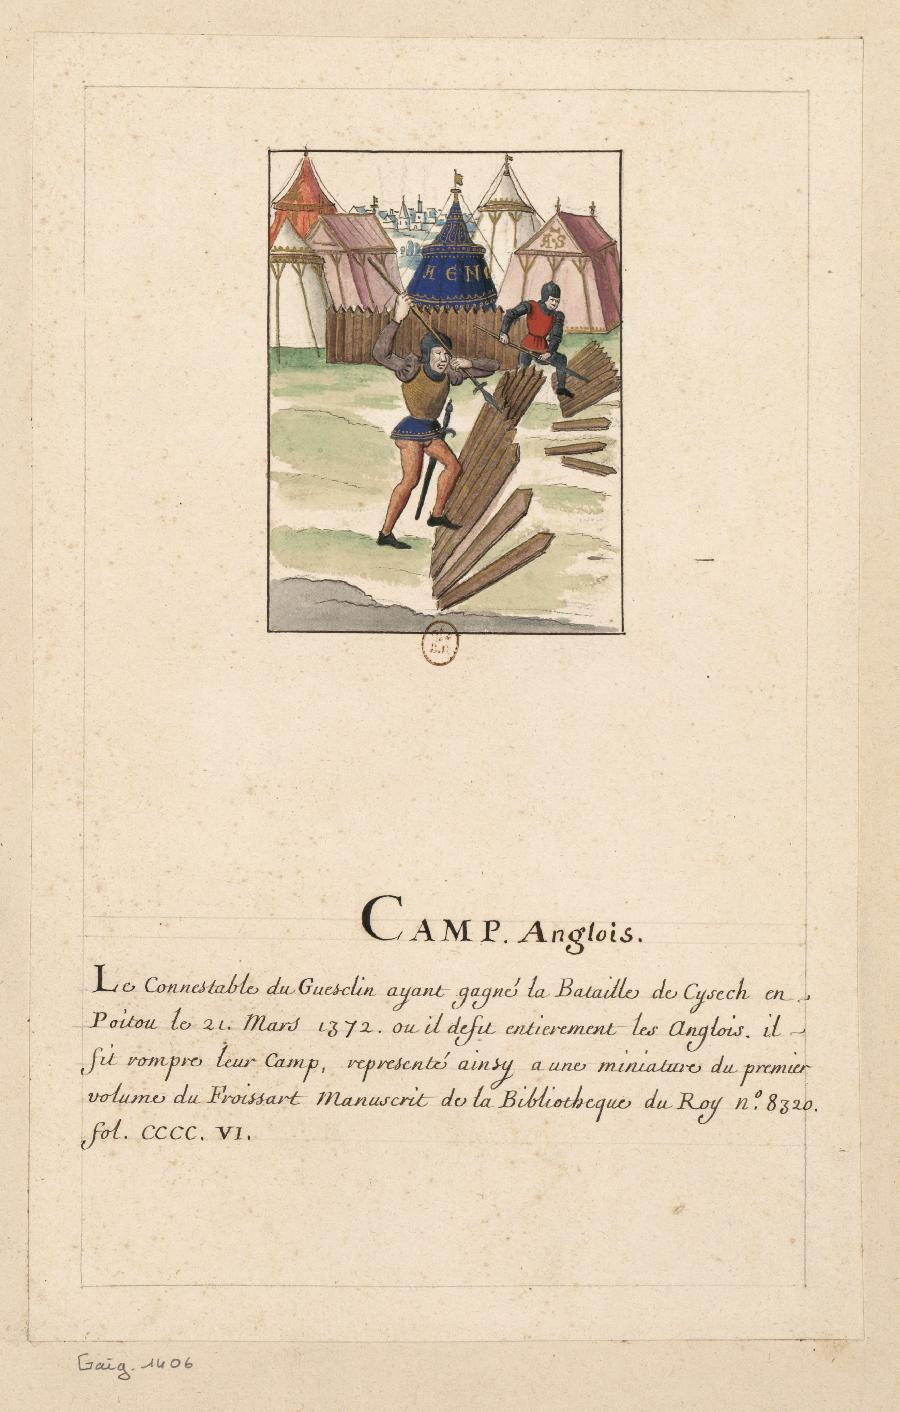 A·S
AEN
B.R.
CAMP. Anglois.
Le Connestable du Guesclin ayant gagné la Bataille de Cysech en
Poitou le 21. Mars 1372. ou il defit entierement les Anglois. il
fit rompre leur Camp, representé ainsy a une miniature du premier
volume du Froissart Manuscrit de la Bibliotheque du Roy n.º 8320.
fol. CCCC. VI.
Gaig. 1406